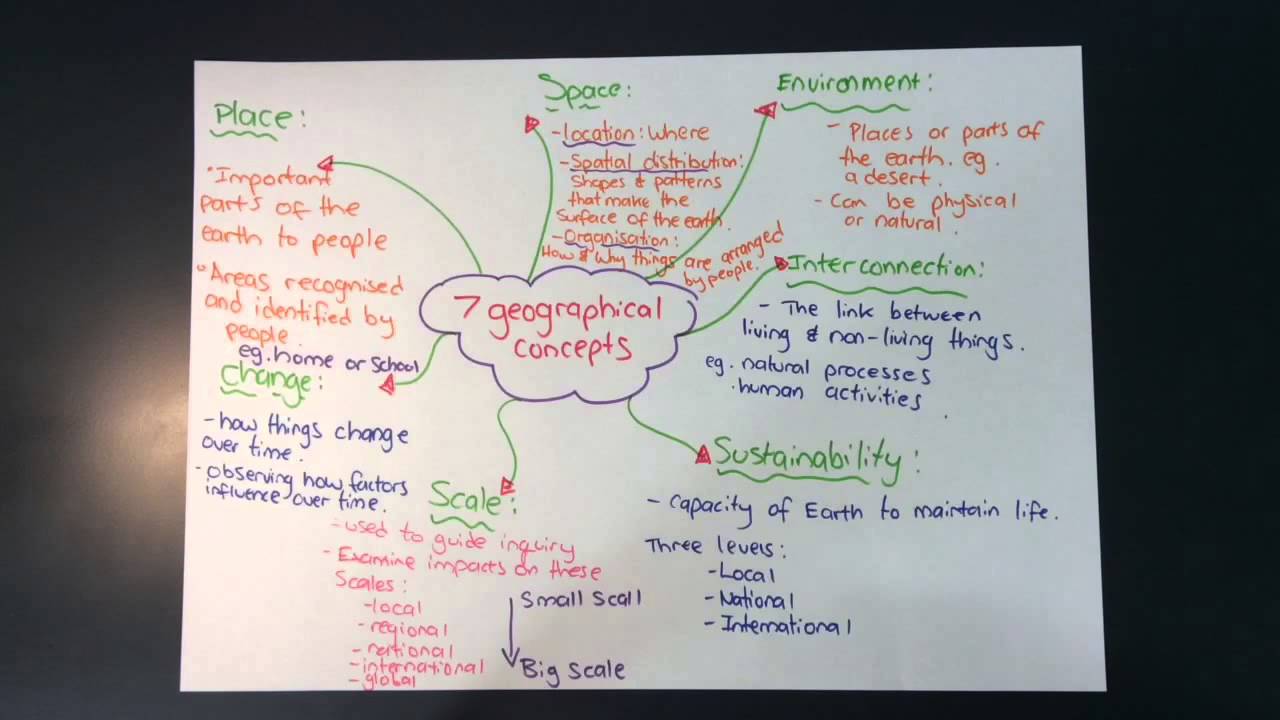 7 geographical
concepts
Place:
• Important
parts of the
earth to people
• Areas recognised
and identified by
people.
eg. home or school
Space:
- location: where
- Spatial distribution:
Shapes & patterns
that make the
surface of the earth.
- Organisation:
How & why things are arranged
by people.
Environment:
- Places or parts of
the earth. eg.
a desert.
- Can be physical
or natural.
Interconnection:
- The link between
living & non-living things.
eg. natural processes
. human activities
.
Sustainability:
- capacity of Earth to maintain life.
Three levels:
- Local
- National
- International
Scale:
- used to guide inquiry
- Examine impacts on these
Scales:
- local
- regional
- national
- international
- global
Small Scall
Big Scale
Change:
- how things change
over time.
- observing how factors
influence over time.